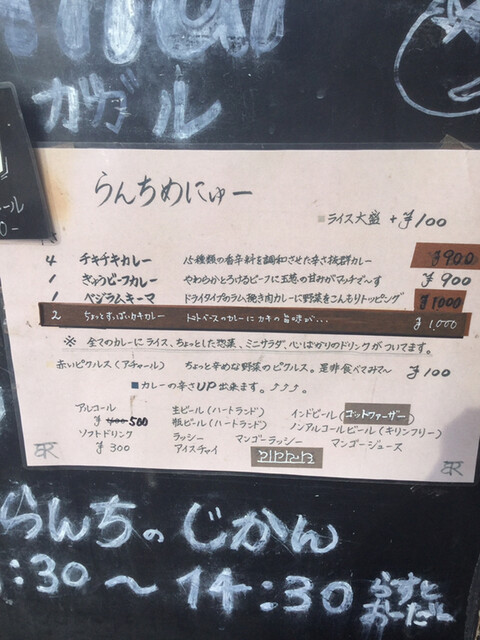 ガガル
らんちめにゅー
ライス大盛 +¥100
4 チキチキカレー 15種類の香辛料を調和させた辛さ抜群カレー ¥900
1 ぎゅうビーフカレー やわらかとろけるビーフに玉葱の甘みがマッチで〜す ¥900
1 ベジラムキーマ ドライタイプのラム挽き肉カレーに野菜をこんもりトッピング ¥1000
2 ちょっとすっぱいカキカレー トマトベースのカレーにカキの旨味が... ¥1,000
※ 全てのカレーにライス、ちょっとした惣菜、ミニサラダ、心ばかりのドリンクがついてます。
赤いピクルス(アチャール) ちょっと辛めな野菜のピクルス。是非食べてみて〜 ¥100
カレーの辛さUP出来ます。
アルコール ¥400 500 生ビール(ハートランド) インドビール(ゴッドファーザー)
瓶ビール(ハートランド) ノンアルコールビール(キリンフリー)
ソフトドリンク ¥300 ラッシー マンゴーラッシー マンゴージュース
アイスチャイ
らんちのじかん
:30〜14:30 らすとおーだー